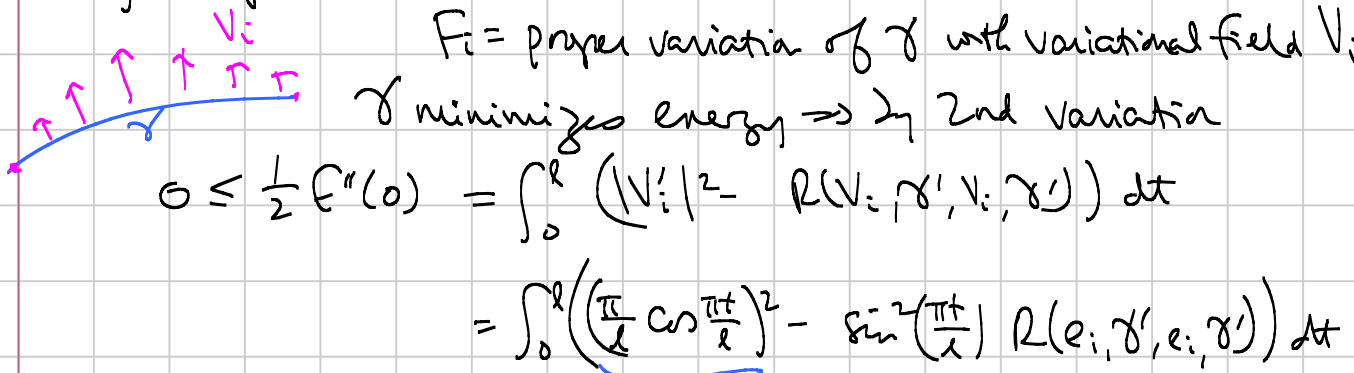 V_i F_i = proper variation of γ with variational field V_i
γ minimizes energy ⇒ by 2nd variation
γ
0 ≤ 1/2 E''(0) = ∫_0^l (|V_i'|^2 - R(V_i, γ', V_i, γ')) dt
= ∫_0^l ((π/l cos πt/l)^2 - sin^2(πt/l) R(e_i, γ', e_i, γ')) dt